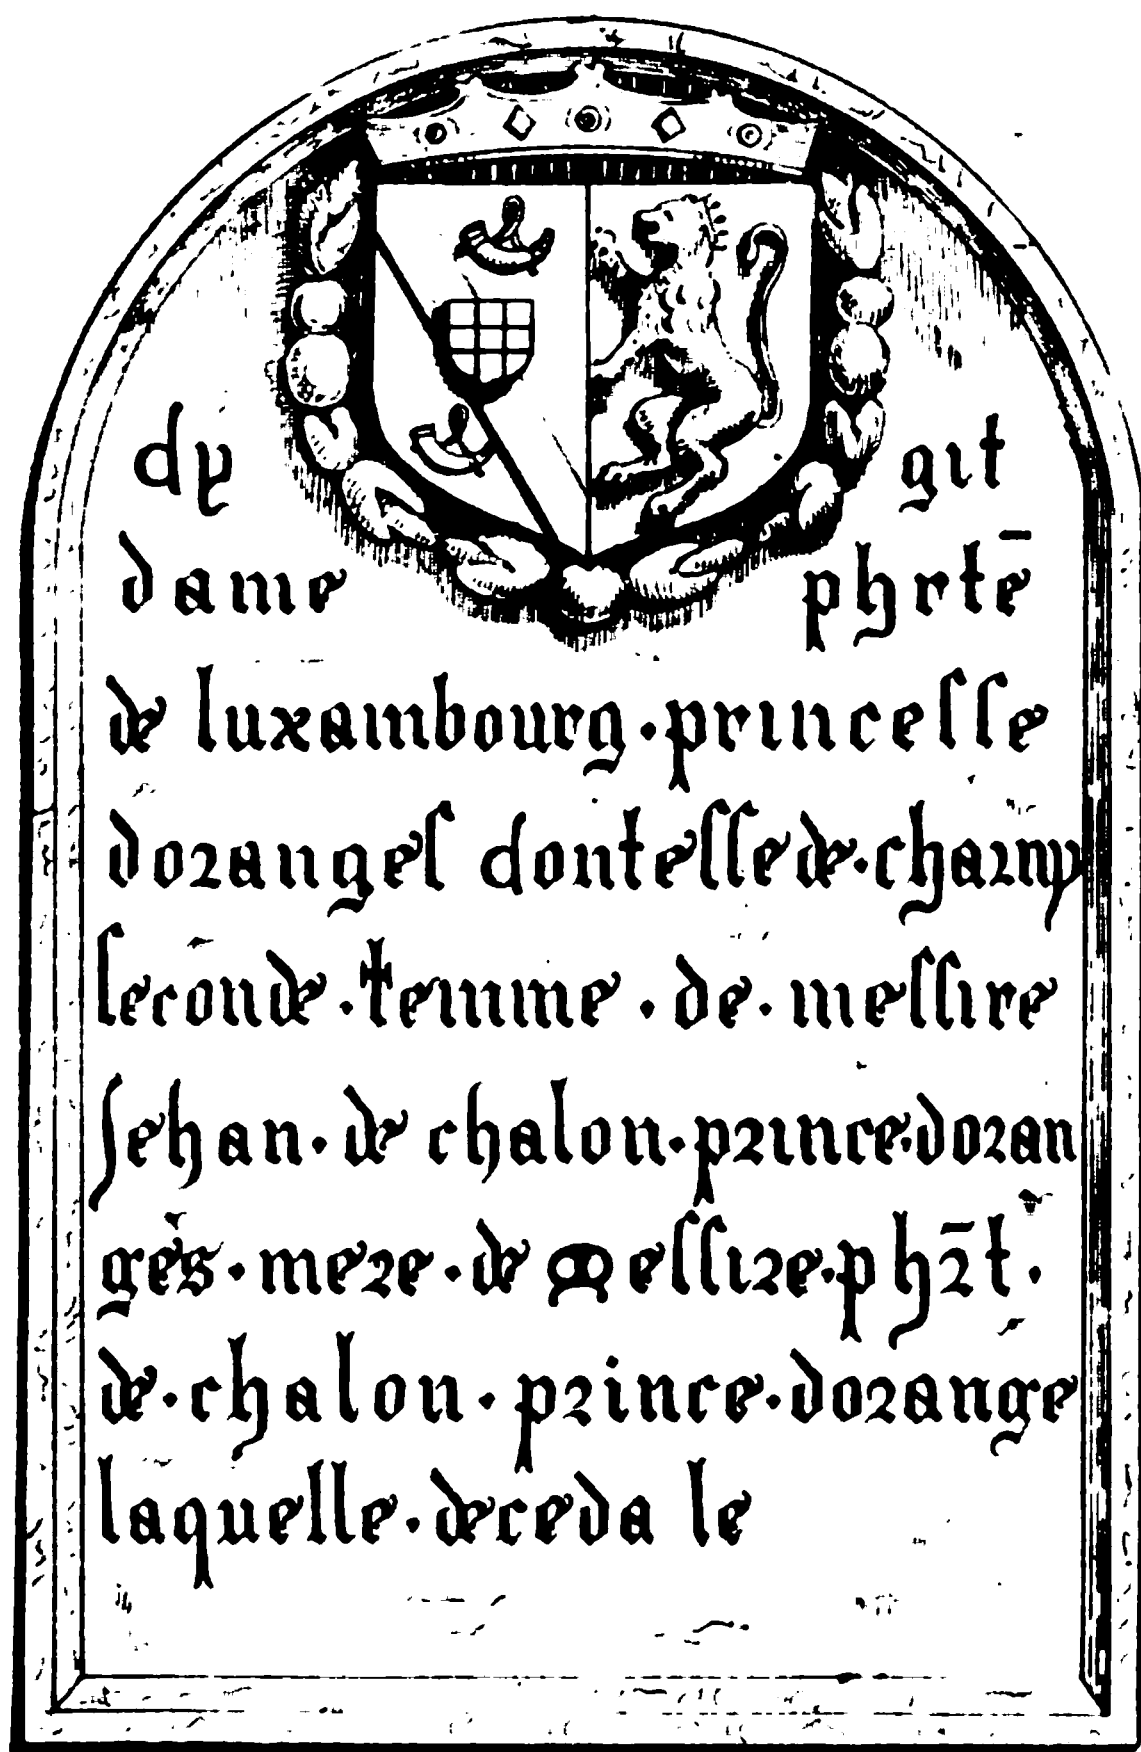 cy git
dame phrtē
de luxambourg · princesse
doranges contesse de · charny
seconde · femme · de · messire
Jehan · de chalon · prince · doran
ges · mere · de Messire · phr̄t ·
de · chalon · prince · dorange
laquelle · deceda le